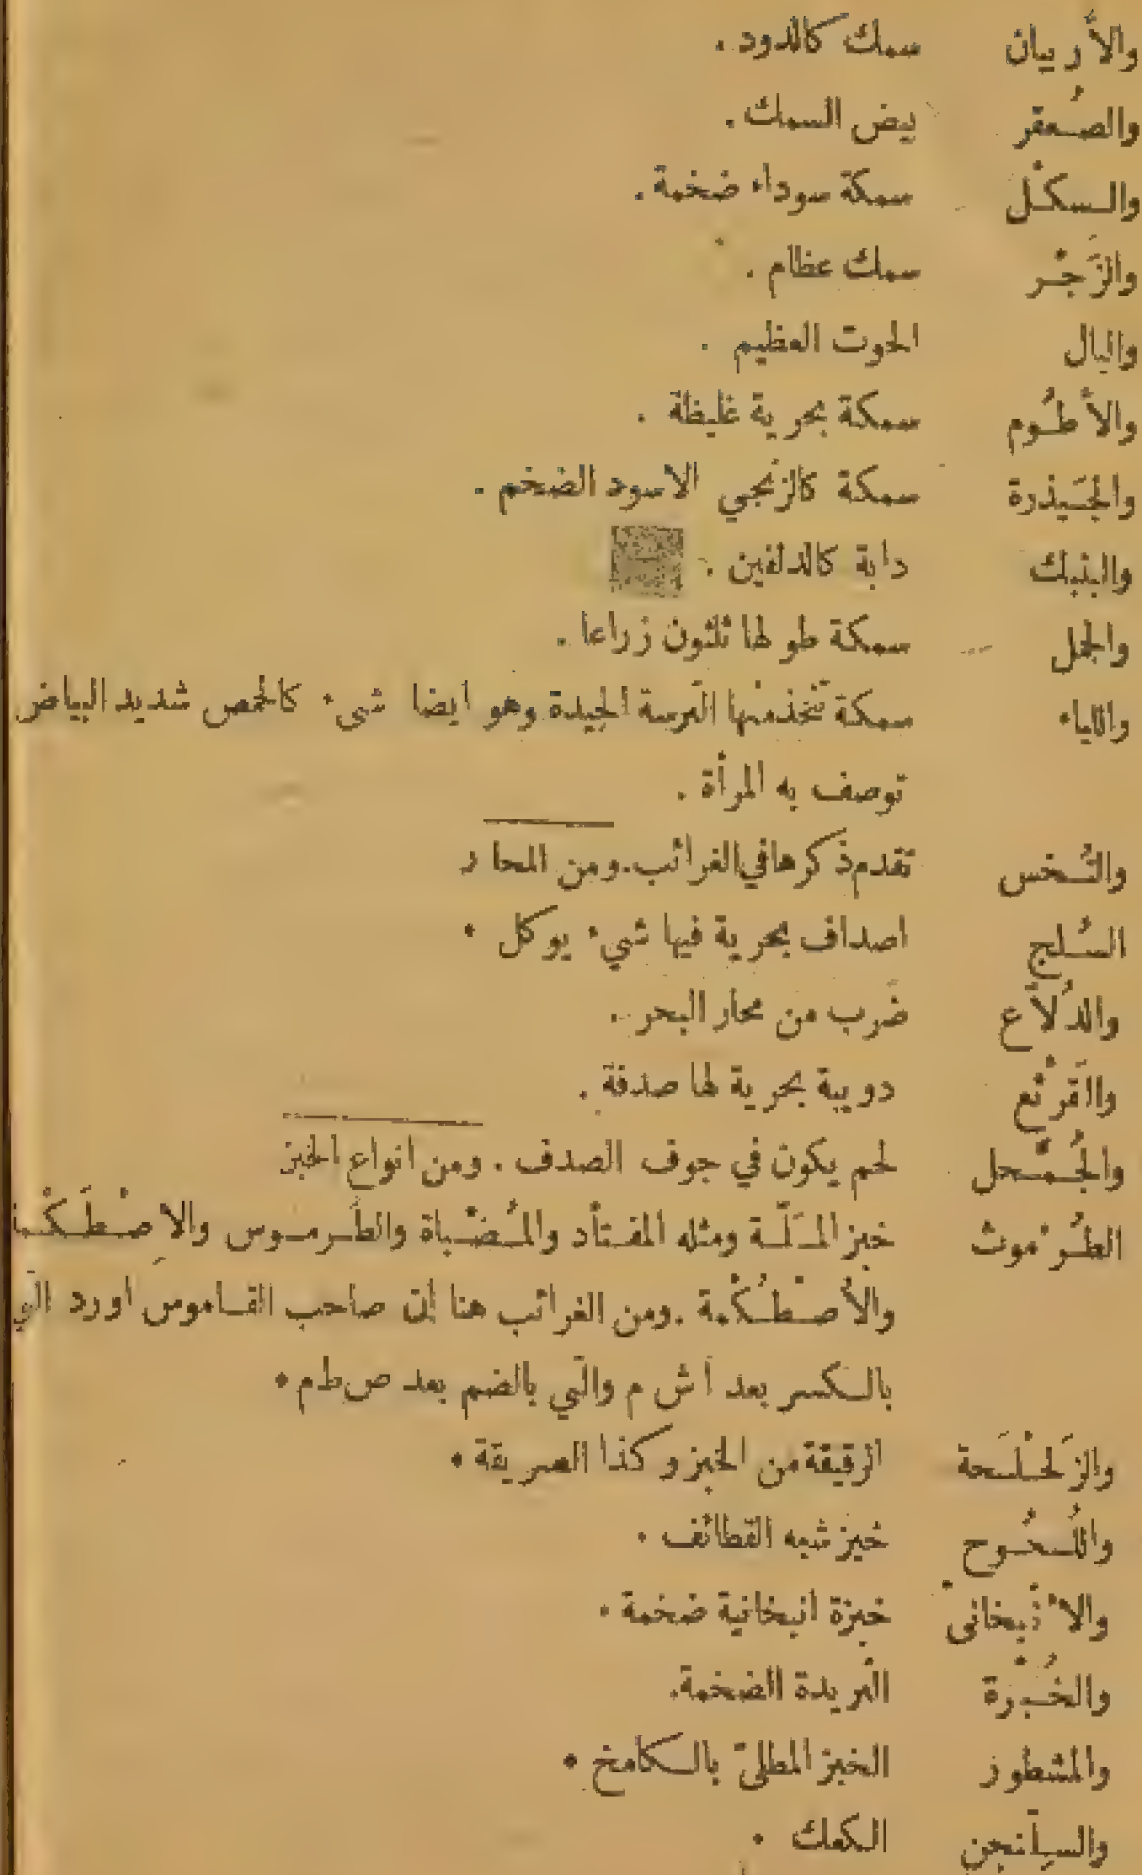 والأربيان سمك كالدود.
والصُعقر بيض السمك.
والسكْل سمكة سوداء ضخمة.
والزَجْر سمك عظام.
والبال الحوت العظيم.
والأطُوم سمكة بحرية غليظة.
والجَيذرة سمكة كالزنجي الاسود الضخم.
والبنبك دابة كالدلفين.
والجمل سمكة طولها ثلثون زراعا.
واللياء سمكة تتخذ منها الترسة الجيدة وهو ايضا شيء كالحمص شديد البياض
توصف به المرأة.
والتُخس تقدم ذكرها في الغرائب. ومن المحار
السُلج اصداف بحرية فيها شيء يوكل.
والدُلاّع ضَرب من محار البحر.
والقَرْثع دويبة بحرية لها صدفة.
والجُمَّحل لحم يكون في جوف الصدف. ومن انواع الخبز
الطُرْموث خبز المَلّة ومثله المفتأد والمُضْباة والطَرموس والاِصْطَكْمة
والأُصْطُكْمة. ومن الغرائب هنا ان صاحب القاموس اورد التي
بالكسر بعد اش م والتي بالضم بعد ص ط م.
والزَلَحْلَحة الرقيقة من الخبز وكذا الصريقة.
واللُحُوح خبز شبه القطائف.
والانبخانيّ خبزة انبخانية ضخمة.
والخُبْزة الثريدة الضخمة.
والمشطور الخبز المطليّ بالكامخ.
الكعك.